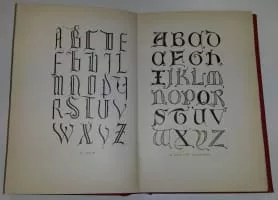 A B C D E
F b H I L
M N O P U
R S T U V
V X Y Z
A B C D
C F G h
I J K L M
N O P O R
S T U V
W X Y Z